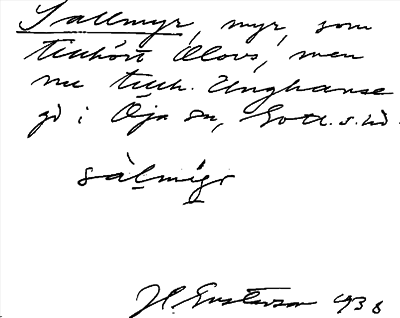 Sallmyr, myr, som
tillhört Olovs, men
nu tillh. Unghanse
gd i Öja sn, Gotl. s. hd.
sàlmýr
H. Gustavson 1938